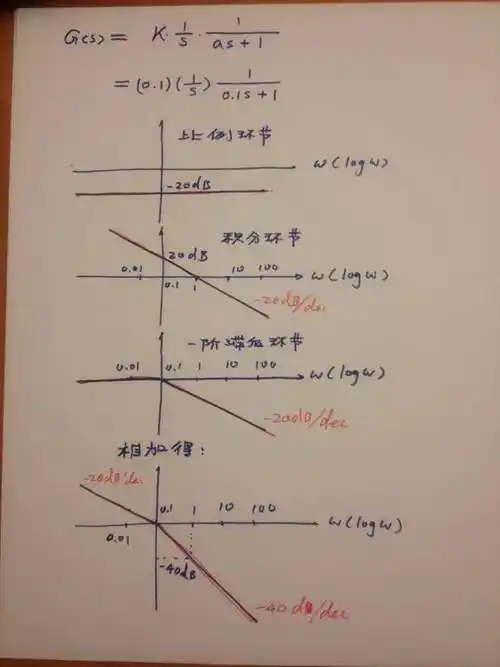 G(s) = K · 1/s · 1/(as+1)
= (0.1) (1/s) 1/(0.1s+1)
比例环节
w(logw)
-20dB
积分环节
20dB
0.01 0.1 1 10 100 w(logw)
-20dB/dec
一阶滞后环节
0.01 0.1 1 10 100 w(logw)
-20dB/dec
相加得：
-20dB/dec
0.01 0.1 1 10 100 w(logw)
-40dB
-40dB/dec